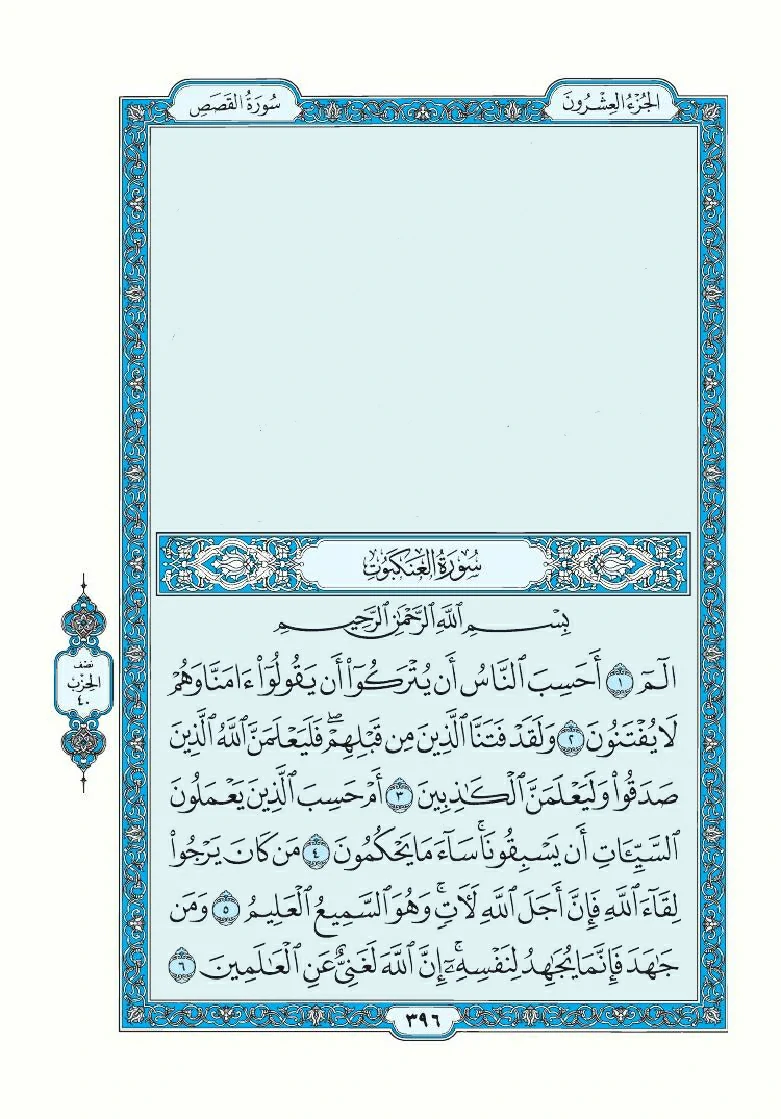 الجُزْءُ العِشْرُونَ
سُورَةُ القَصَصِ
سُورَةُ العَنكَبُوتِ
بِسْمِ ٱللَّهِ ٱلرَّحْمَٰنِ ٱلرَّحِيمِ
الٓمٓ ١ أَحَسِبَ ٱلنَّاسُ أَن يُتْرَكُوٓا۟ أَن يَقُولُوٓا۟ ءَامَنَّا وَهُمْ
لَا يُفْتَنُونَ ٢ وَلَقَدْ فَتَنَّا ٱلَّذِينَ مِن قَبْلِهِمْ ۖ فَلَيَعْلَمَنَّ ٱللَّهُ ٱلَّذِينَ
صَدَقُوا۟ وَلَيَعْلَمَنَّ ٱلْكَٰذِبِينَ ٣ أَمْ حَسِبَ ٱلَّذِينَ يَعْمَلُونَ
ٱلسَّيِّـَٔاتِ أَن يَسْبِقُونَا ۚ سَآءَ مَا يَحْكُمُونَ ٤ مَن كَانَ يَرْجُوا۟
لِقَآءَ ٱللَّهِ فَإِنَّ أَجَلَ ٱللَّهِ لَـَٔاتٍ ۚ وَهُوَ ٱلسَّمِيعُ ٱلْعَلِيمُ ٥ وَمَن
جَٰهَدَ فَإِنَّمَا يُجَٰهِدُ لِنَفْسِهِۦٓ ۚ إِنَّ ٱللَّهَ لَغَنِىٌّ عَنِ ٱلْعَٰلَمِينَ ٦
نصف
الحِزْبِ
٤٠
٣٩٦